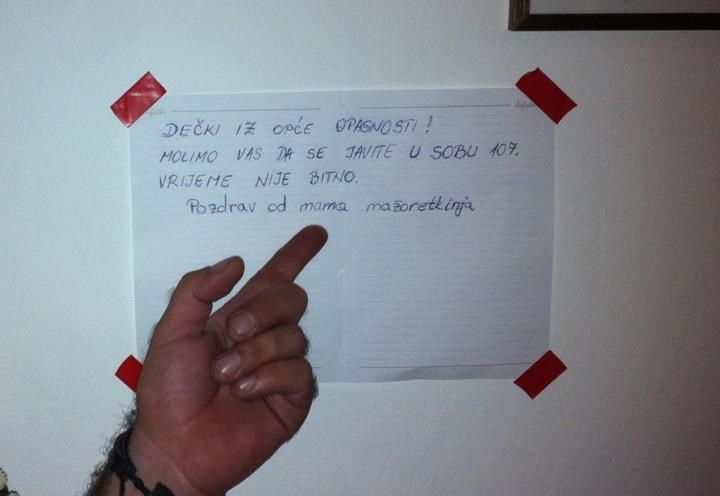 DEČKI IZ OPĆE OPASNOSTI!
MOLIMO VAS DA SE JAVITE U SOBU 107.
VRIJEME NIJE BITNO.
Pozdrav od mama mažoretkinja